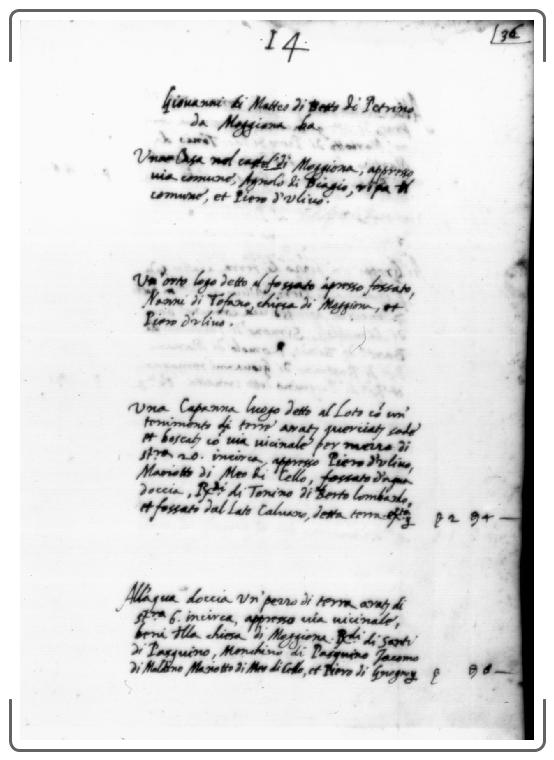 14
36
Giovanni di Matteo di Betto di Petrino
da Moggiona ha
Una Casa nel castel di Moggiona, appresso
via comune, Agnolo di Biagio, ripa del
comune, et Piero d'Ulivo.
Un orto logo detto al fossato apresso fossato,
Nanni di Tofano, chiesa di Moggiona, et
Piero d'Ulivo.
Una Capanna luogo detto al Loto cò un
tenimento di terre
et cò via vicinale per mezzo di
stra 20. incirca, appresso Piero d'Ulivo,
Mariotto di Meo di Cello, fossato d'aqua
doccia, Rede di Tonino di Berto lombardo,
et fossato dal Lato Calvano, detta terra
2 4 —
All'aqua doccia un pezzo di terra di
stra 6. incirca, appresso via vicinale,
beni della chiesa di Moggiona Rede di Santi
di Pasquino, Menchino di Pasquino Jacomo
di Mariotto di Meo di Cello, et Piero di